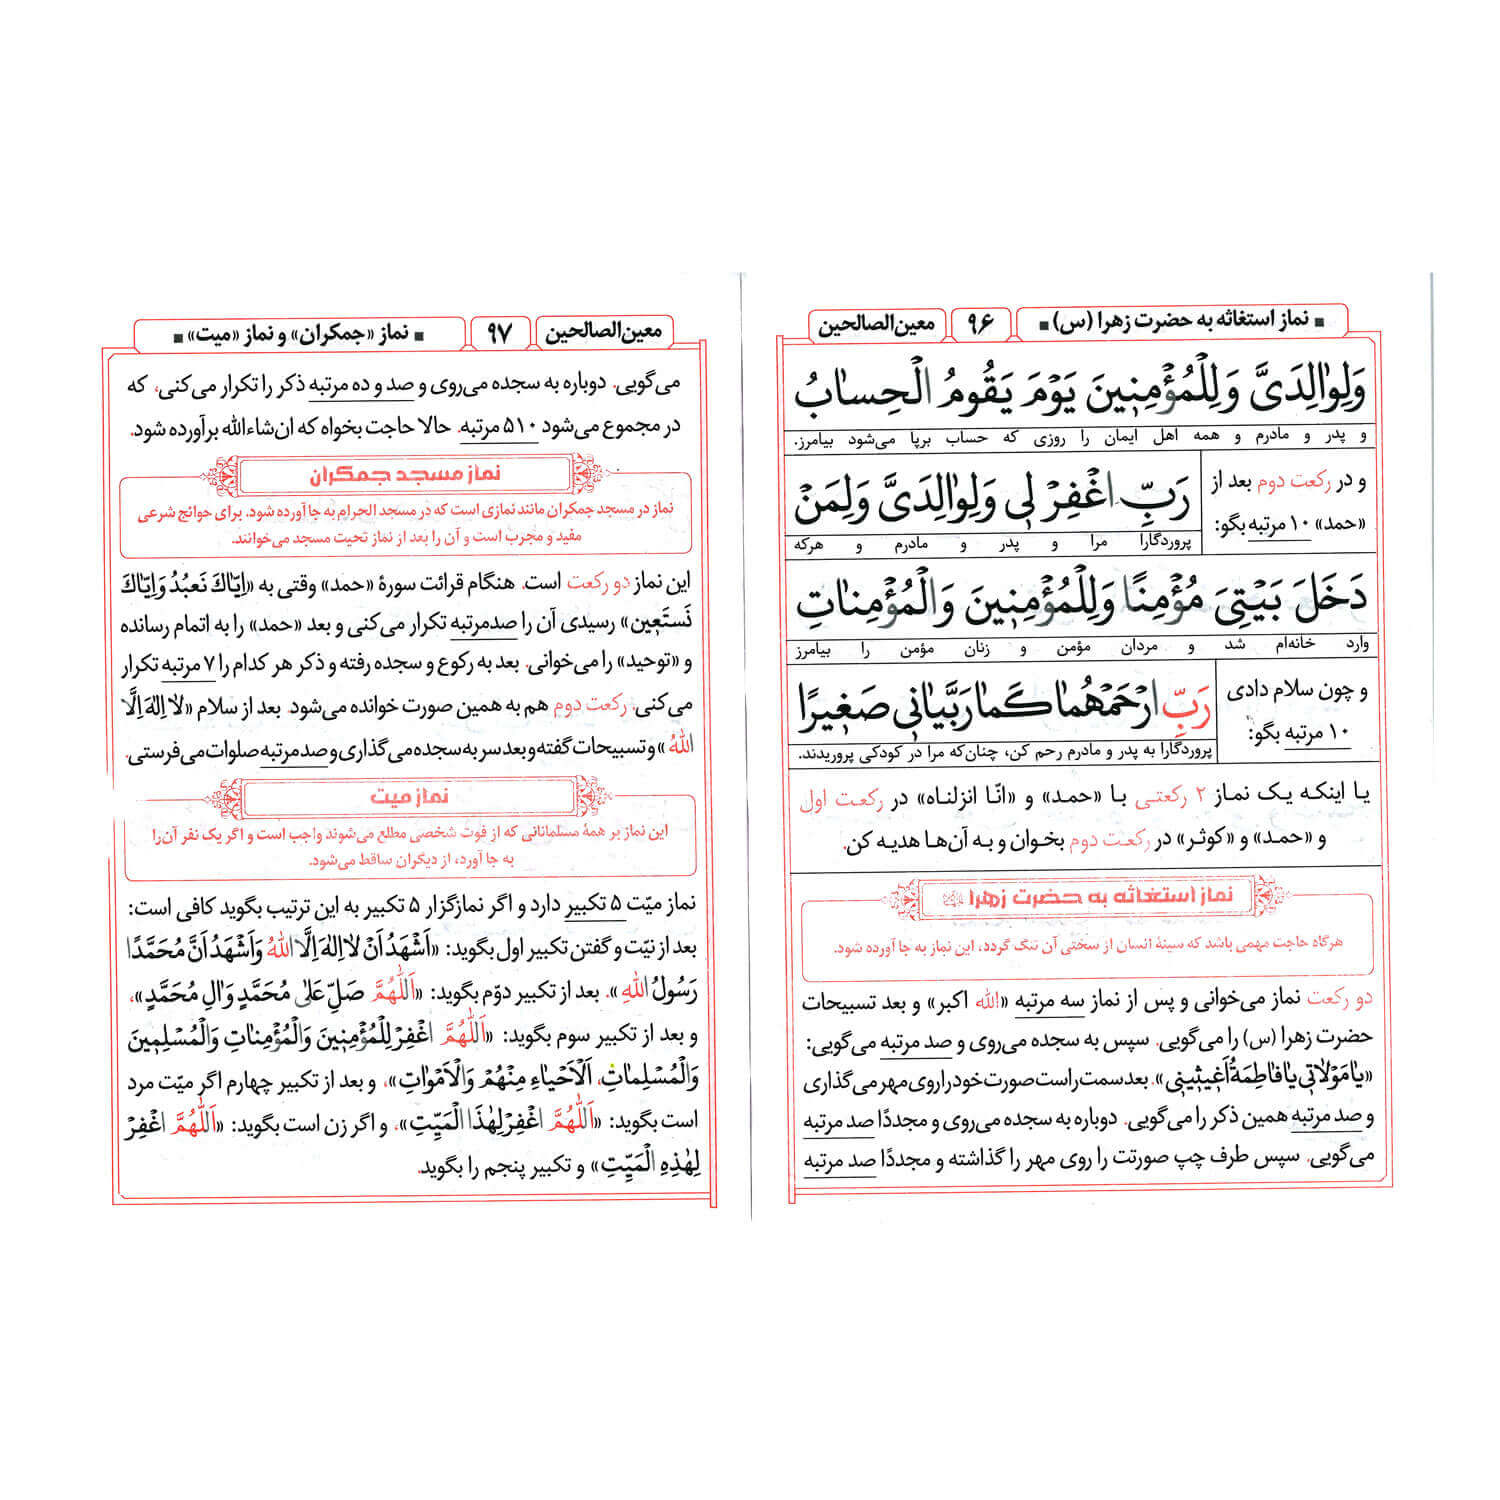 ▪ نماز استغاثه به حضرت زهرا (س) ▪
۹۶
معین‌الصالحین
وَلِوٰالِدَیَّ وَلِلْمُؤْمِنِینَ یَوْمَ یَقُومُ الْحِسٰابُ
و پدر و مادرم و همه اهل ایمان را روزی که حساب برپا می‌شود بیامرز.
و در رکعت دوم بعد از
«حمد» ۱۰ مرتبه بگو:
رَبِّ اغْفِرْ لِی وَلِوٰالِدَیَّ وَلِمَنْ
پروردگارا مرا و پدر و مادرم و هرکه
دَخَلَ بَیْتِیَ مُؤْمِنًا وَلِلْمُؤْمِنِینَ وَالْمُؤْمِنٰاتِ
وارد خانه‌ام شد و مردان مؤمن و زنان مؤمن را بیامرز
و چون سلام دادی
۱۰ مرتبه بگو:
رَبِّ ارْحَمْهُمٰا کَمٰا رَبَّیٰانِی صَغِیرًا
پروردگارا به پدر و مادرم رحم کن، چنان‌که مرا در کودکی پروریدند.
یا اینکه یک نماز ۲ رکعتی با «حمد» و «انّا انزلناه» در رکعت اول
و «حمد» و «کوثر» در رکعت دوم بخوان و به آن‌ها هدیه کن.
نماز استغاثه به حضرت زهرا
هرگاه حاجت مهمی باشد که سینهٔ انسان از سختی آن تنگ گردد، این نماز به جا آورده شود.
دو رکعت نماز می‌خوانی و پس از نماز سه مرتبه «الله اکبر» و بعد تسبیحات
حضرت زهرا (س) را می‌گویی. سپس به سجده می‌روی و صد مرتبه می‌گویی:
«یٰا مَوْلٰاتِی یٰا فٰاطِمَةُ اَغِیثِینِی». بعد سمت راست صورت خود را روی مهر می‌گذاری
و صد مرتبه همین ذکر را می‌گویی. دوباره به سجده می‌روی و مجددًا صد مرتبه
می‌گویی. سپس طرف چپ صورتت را روی مهر را گذاشته و مجددًا صد مرتبه
معین‌الصالحین
۹۷
▪ نماز «جمکران» و نماز «میت» ▪
می‌گویی. دوباره به سجده می‌روی و صد و ده مرتبه ذکر را تکرار می‌کنی، که
در مجموع می‌شود ۵۱۰ مرتبه. حالا حاجت بخواه که ان‌شاءالله برآورده شود.
نماز مسجد جمکران
نماز در مسجد جمکران مانند نمازی است که در مسجد الحرام به جا آورده شود. برای حوائج شرعی
مفید و مجرب است و آن را بعد از نماز تحیت مسجد می‌خوانند.
این نماز دو رکعت است. هنگام قرائت سورهٔ «حمد» وقتی به «اِیّٰاکَ نَعبُدُ وَ اِیّٰاکَ
نَستَعِین» رسیدی آن را صدمرتبه تکرار می‌کنی و بعد «حمد» را به اتمام رسانده
و «توحید» را می‌خوانی. بعد به رکوع و سجده رفته و ذکر هر کدام را ۷ مرتبه تکرار
می‌کنی. رکعت دوم هم به همین صورت خوانده می‌شود. بعد از سلام «لٰا اِلٰهَ اِلَّا
اللهُ» و تسبیحات گفته و بعد سر به سجده می‌گذاری و صد مرتبه صلوات می‌فرستی.
نماز میت
این نماز بر همهٔ مسلمانانی که از فوت شخصی مطلع می‌شوند واجب است و اگر یک نفر آن را
به جا آورد، از دیگران ساقط می‌شود.
نماز میّت ۵ تکبیر دارد و اگر نمازگزار ۵ تکبیر به این ترتیب بگوید کافی است:
بعد از نیّت و گفتن تکبیر اول بگوید: «اَشْهَدُ اَنْ لٰا اِلٰهَ اِلَّا اللهُ وَ اَشْهَدُ اَنَّ مُحَمَّدًا
رَسُولُ اللهِ». بعد از تکبیر دوّم بگوید: «اَللّٰهُمَّ صَلِّ عَلٰی مُحَمَّدٍ وَ اٰلِ مُحَمَّدٍ»،
و بعد از تکبیر سوم بگوید: «اَللّٰهُمَّ اغْفِرْ لِلْمُؤْمِنِینَ وَالْمُؤْمِنٰاتِ وَالْمُسْلِمِینَ
وَالْمُسْلِمٰاتِ، اَلْاَحْیٰاءِ مِنْهُمْ وَالْاَمْوٰاتِ»، و بعد از تکبیر چهارم اگر میّت مرد
است بگوید: «اَللّٰهُمَّ اغْفِرْ لِهٰذَا الْمَیِّتِ»، و اگر زن است بگوید: «اَللّٰهُمَّ اغْفِرْ
لِهٰذِهِ الْمَیِّتِ» و تکبیر پنجم را بگوید.